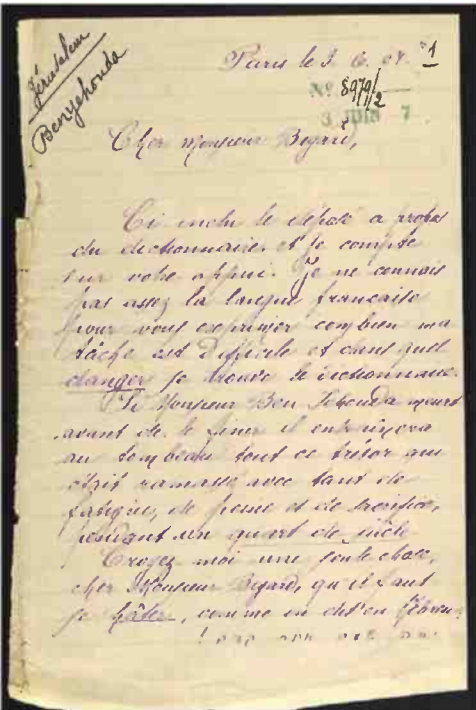 Jérusalem
Benyehouda
Paris le 3. 6. 07.
1
No 8979/2
3 JUIN 7
Cher Monsieur Bigard,
Ci inclu le exposé a propos
du dictionnaire. et je compte
sur votre appui. Je ne connais
pas assez la langue française
pour vous exprimer combien ma
tâche est difficile et dans quel
danger se trouve le dictionnaire.
Si Monsieur Ben Jehouda meurt
avant de le finir il enterrera
au tombeau tout ce trésor qui
était ramassé avec tant de
fatigue, de peine et de sacrifice,
pendant un quart de siècle
Croyez moi une seule chose,
cher Monsieur Bigard, qu'il faut
se hâter, comme on dit en Hébreu: